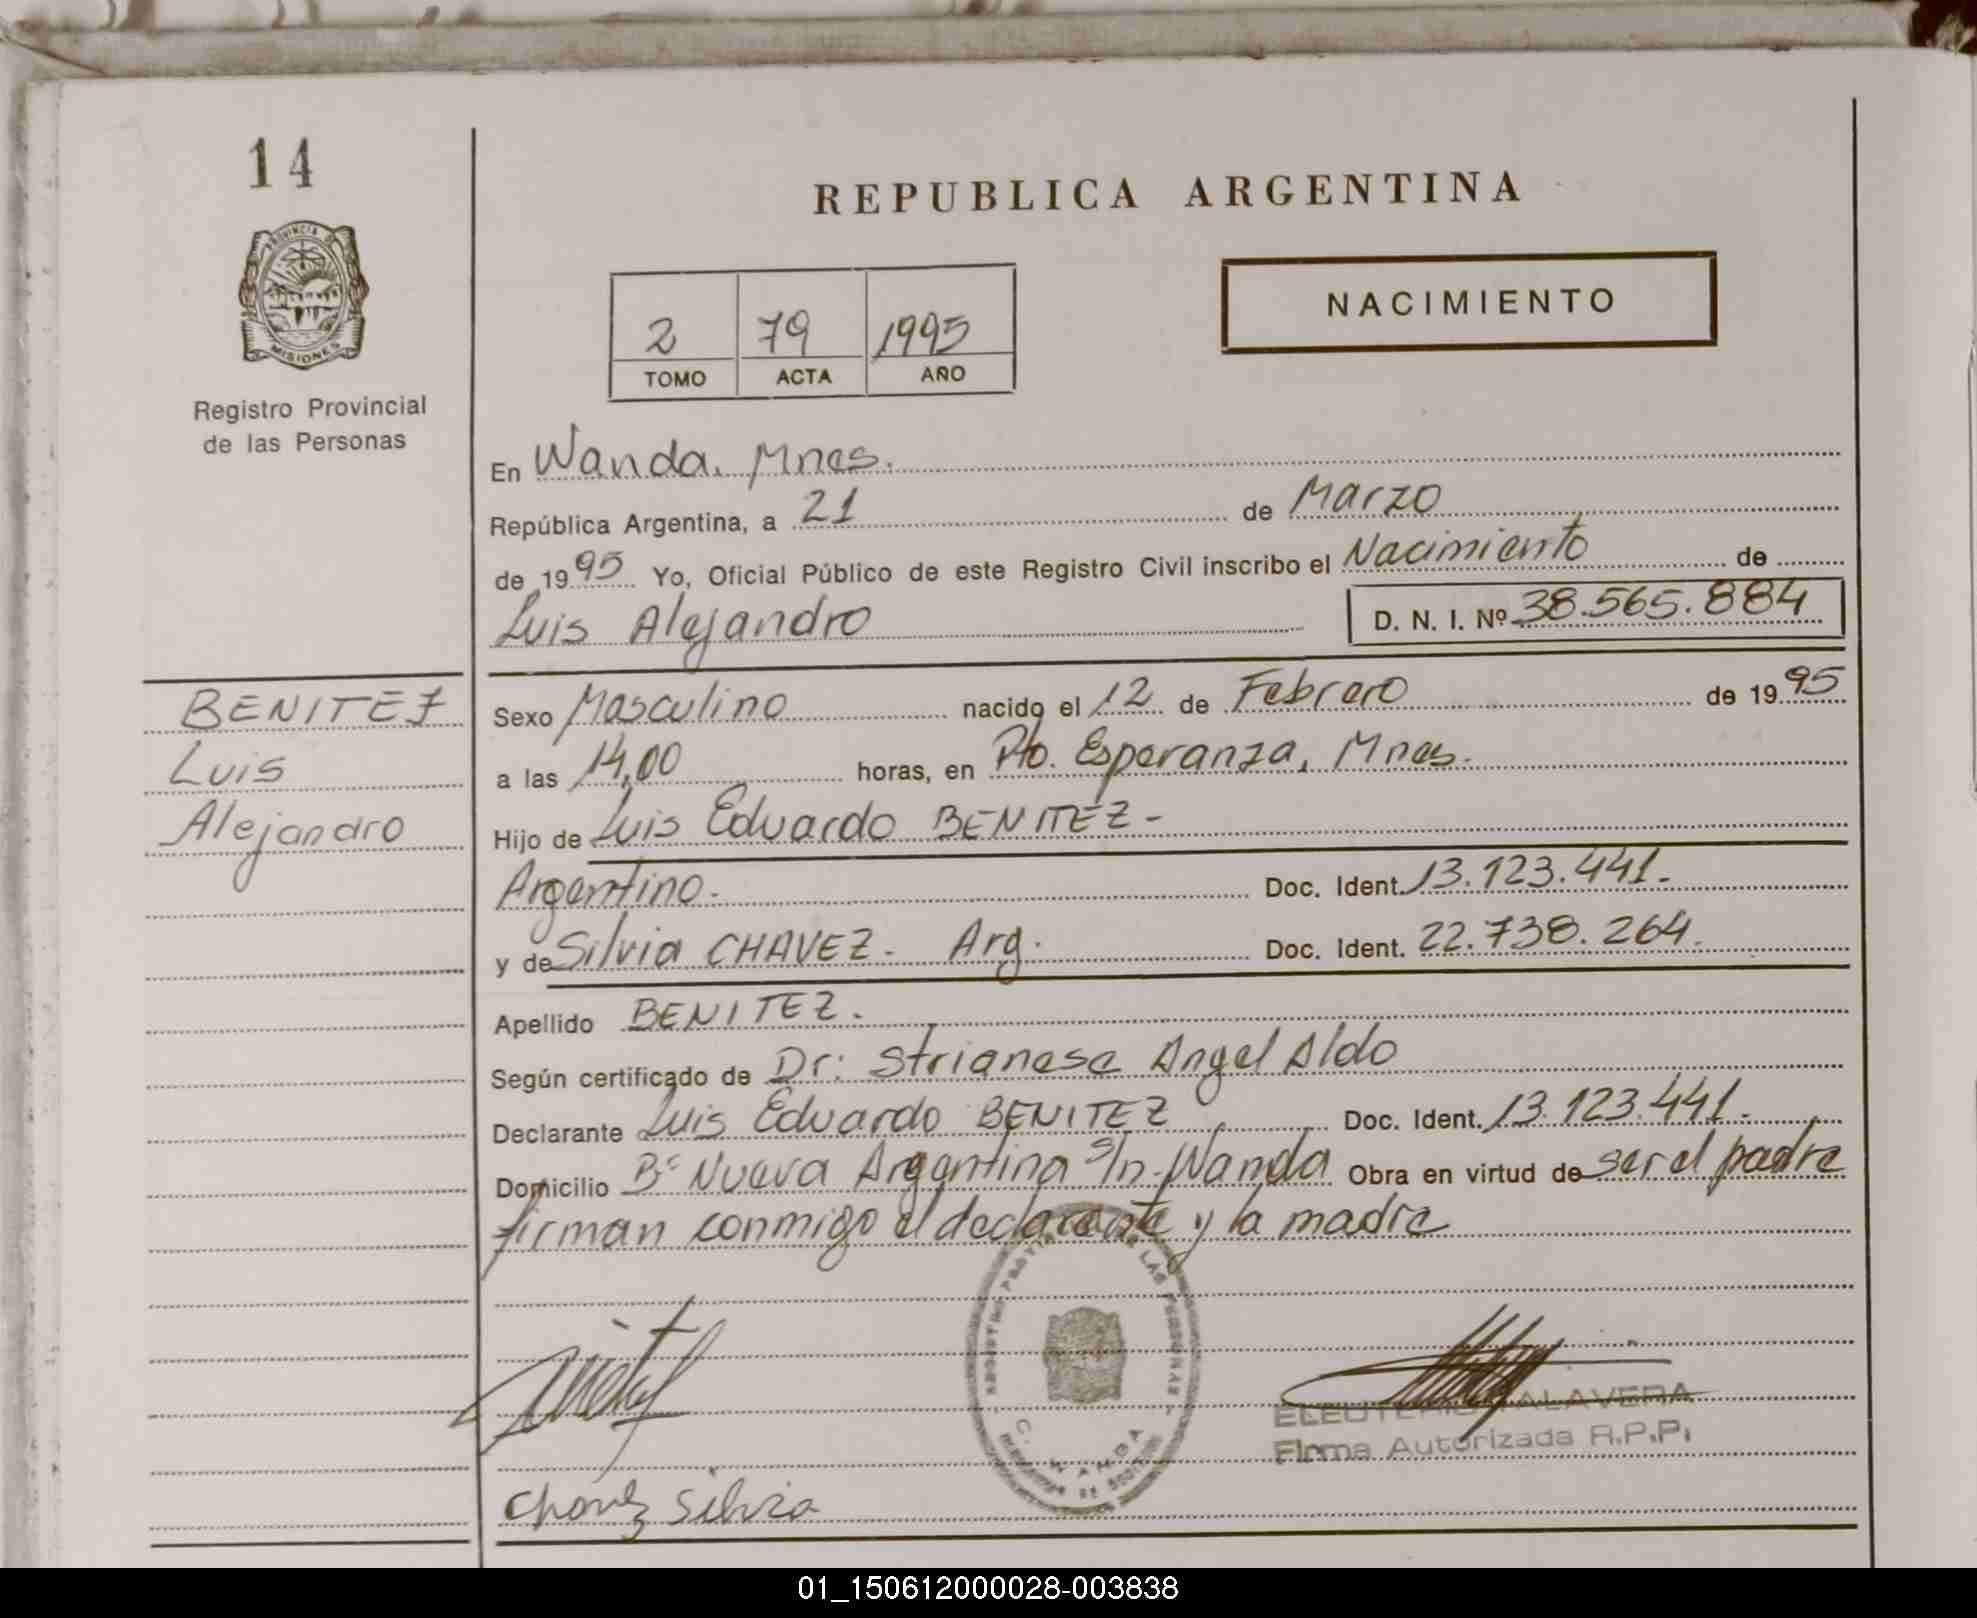 14
REPUBLICA ARGENTINA
PROVINCIA DE
MISIONES
NACIMIENTO
2 79 1995
TOMO ACTA AÑO
Registro Provincial
de las Personas
En Wanda. Mnes.
República Argentina, a 21 de Marzo
de 1995 Yo, Oficial Público de este Registro Civil inscribo el Nacimiento de
Luis Alejandro D. N. I. Nº 38.565.884
BENITEZ
Luis
Alejandro
Sexo Masculino nacido el 12 de Febrero de 1995
a las 14,00 horas, en Pto. Esperanza, Mnes.
Hijo de Luis Eduardo BENITEZ-
Argentino. Doc. Ident. 13.123.441.-
y de Silvia CHAVEZ- Arg. Doc. Ident. 22.738.264.
Apellido BENITEZ.
Según certificado de Dr: Strianese Angel Aldo
Declarante Luis Eduardo BENITEZ Doc. Ident. 13.123.441.-
Domicilio Bº Nueva Argentina s/n-Wanda Obra en virtud de ser el padre
firman conmigo el declarante y la madre
LAS PERSONAS
WANDA
ELEUTERIO TALAVERA
Firma Autorizada R.P.P.
Chavez Silvia
01_150612000028-003838